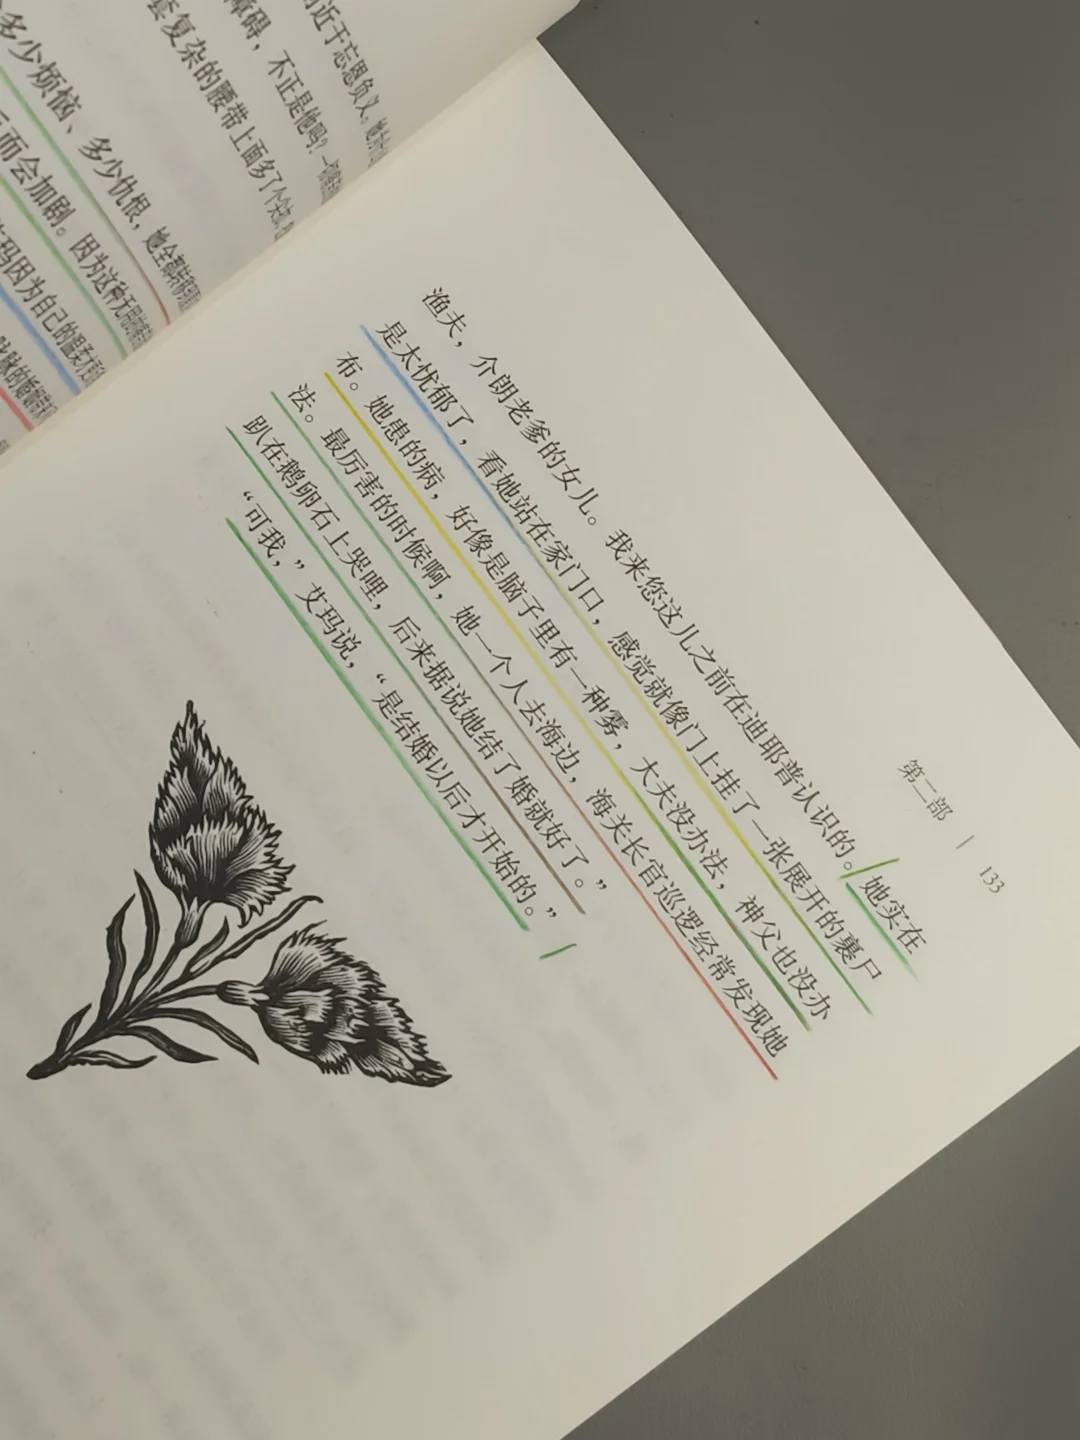 近于忘恩负义。
障碍，不正是他吗？一
套复杂的腰带上面多了个
多少烦恼、多少仇恨，她全都
而会加剧。因为这种无用的
玛因为自己的温柔才
脉的婚姻
第二部 | 133
渔夫，介朗老爹的女儿。我来您这儿之前在迪耶普认识的。她实在
是太忧郁了，看她站在家门口，感觉就像门上挂了一张展开的裹尸
布。她患的病，好像是脑子里有一种雾，大夫没办法，神父也没办
法。最厉害的时候啊，她一个人去海边，海关长官巡逻经常发现她
趴在鹅卵石上哭哩，后来据说她结了婚就好了。”
“可我，”艾玛说，“是结婚以后才开始的。”